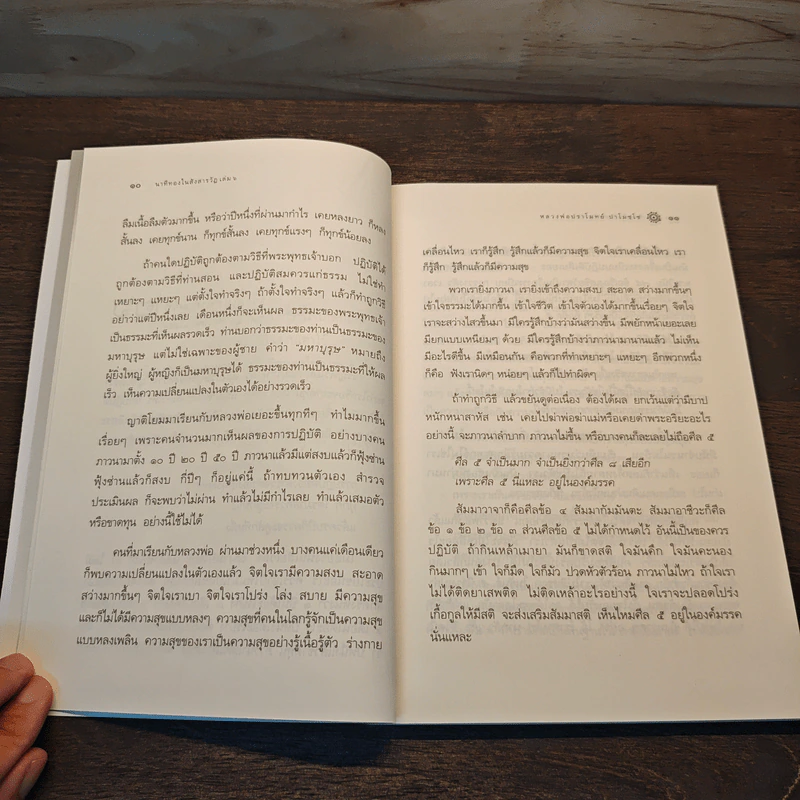 ๑๐ นาทีทองในสังสารวัฏ เล่ม ๖
ลืมเนื้อลืมตัวมากขึ้น หรือว่าปีหนึ่งที่ผ่านมากำไร เคยหลงยาว ก็หลง
สั้นลง เคยทุกข์นาน ก็ทุกข์สั้นลง เคยทุกข์แรงๆ ก็ทุกข์น้อยลง
ถ้าคนใดปฏิบัติถูกต้องตามวิธีที่พระพุทธเจ้าบอก ปฏิบัติได้
ถูกต้องตามวิธีที่ท่านสอน และปฏิบัติสมควรแก่ธรรม ไม่ใช่ทำ
เหยาะๆ แหยะๆ แต่ตั้งใจทำจริงๆ ถ้าตั้งใจทำจริงๆ แล้วก็ทำถูกวิธี
อย่าว่าแต่ปีหนึ่งเลย เดือนหนึ่งก็จะเห็นผล ธรรมะของพระพุทธเจ้า
เป็นธรรมะที่เห็นผลรวดเร็ว ท่านบอกว่าธรรมะของท่านเป็นธรรมะของ
มหาบุรุษ แต่ไม่ใช่เฉพาะของผู้ชาย คำว่า “มหาบุรุษ” หมายถึง
ผู้ยิ่งใหญ่ ผู้หญิงก็เป็นมหาบุรุษได้ ธรรมะของท่านเป็นธรรมะที่ให้ผล
เร็ว เห็นความเปลี่ยนแปลงในตัวเองได้อย่างรวดเร็ว
ญาติโยมมาเรียนกับหลวงพ่อเยอะขึ้นทุกทีๆ ทำไมมากขึ้น
เรื่อยๆ เพราะคนจำนวนมากเห็นผลของการปฏิบัติ อย่างบางคน
ภาวนามาตั้ง ๑๐ ปี ๒๐ ปี ๕๐ ปี ภาวนาแล้วมีแต่สงบแล้วก็ฟุ้งซ่าน
ฟุ้งซ่านแล้วก็สงบ กี่ปีๆ ก็อยู่แค่นี้ ถ้าทบทวนตัวเอง สำรวจ
ประเมินผล ก็จะพบว่าไม่ผ่าน ทำแล้วไม่มีกำไรเลย ทำแล้วเสมอตัว
หรือขาดทุน อย่างนี้ใช้ไม่ได้
คนที่มาเรียนกับหลวงพ่อ ผ่านมาช่วงหนึ่ง บางคนแค่เดือนเดียว
ก็พบความเปลี่ยนแปลงในตัวเองแล้ว จิตใจเรามีความสงบ สะอาด
สว่างมากขึ้นๆ จิตใจเราเบา จิตใจเราโปร่ง โล่ง สบาย มีความสุข
และก็ไม่ได้มีความสุขแบบหลงๆ ความสุขที่คนในโลกรู้จักเป็นความสุข
แบบหลงเพลิน ความสุขของเราเป็นความสุขอย่างรู้เนื้อรู้ตัว ร่างกาย
หลวงพ่อปราโมทย์ ปาโมชฺโช ๑๑
เคลื่อนไหว เราก็รู้สึก รู้สึกแล้วก็มีความสุข จิตใจเราเคลื่อนไหว เรา
ก็รู้สึก รู้สึกแล้วก็มีความสุข
พวกเรายิ่งภาวนา เรายิ่งเข้าถึงความสงบ สะอาด สว่างมากขึ้นๆ
เข้าใจธรรมะได้มากขึ้น เข้าใจชีวิต เข้าใจตัวเองได้มากขึ้นเรื่อยๆ จิตใจ
เราจะสว่างไสวขึ้นมา มีใครรู้สึกบ้างว่ามันสว่างขึ้น มีพยักหน้าเยอะเลย
มียกแบบเหนียมๆ ด้วย มีใครรู้สึกบ้างว่าภาวนามานานแล้ว ไม่เห็น
มีอะไรดีขึ้น มีเหมือนกัน คือพวกที่ทำเหยาะๆ แหยะๆ อีกพวกหนึ่ง
ก็คือ ฟังเรานิดๆ หน่อยๆ แล้วก็ไปทำผิดๆ
ถ้าทำถูกวิธี แล้วขยันดูต่อเนื่อง ต้องได้ผล ยกเว้นแต่ว่ามีบาป
หนักหนาสาหัส เช่น เคยไปฆ่าพ่อฆ่าแม่หรือเคยด่าพระอริยะอะไร
อย่างนี้ จะภาวนาลำบาก ภาวนาไม่ขึ้น หรือบางคนก็ละเลยไม่ถือศีล ๕
ศีล ๕ จำเป็นมาก จำเป็นยิ่งกว่าศีล ๘ เสียอีก
เพราะศีล ๕ นี่แหละ อยู่ในองค์มรรค
สัมมาวาจาก็คือศีลข้อ ๔ สัมมากัมมันตะ สัมมาอาชีวะก็ศีล
ข้อ ๑ ข้อ ๒ ข้อ ๓ ส่วนศีลข้อ ๕ ไม่ได้กำหนดไว้ อันนี้เป็นของควร
ปฏิบัติ ถ้ากินเหล้าเมายา มันก็ขาดสติ ใจมันคึก ใจมันคะนอง
กินมากๆ เข้า ใจก็มืด ใจก็มัว ปวดหัวตัวร้อน ภาวนาไม่ไหว ถ้าใจเรา
ไม่ได้ติดยาเสพติด ไม่ติดเหล้าอะไรอย่างนี้ ใจเราจะปลอดโปร่ง
เกื้อกูลให้มีสติ จะส่งเสริมสัมมาสติ เห็นไหมศีล ๕ อยู่ในองค์มรรค
นั่นแหละ